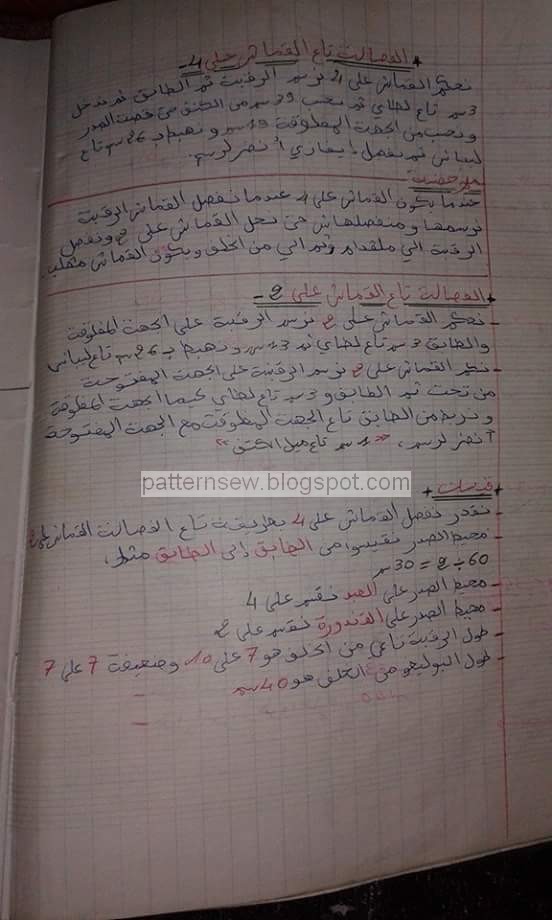 + الفصالت تاع القماش على 4 -
نحكم القماش على 4 نرسم الرقبة ثم الطابق ثم ندخل
3 سم تاع لطاي ثم نحسب 29 سم من الكتف حتى خصت الصدر
ونحسب من الجهة المطلوقة 13 سم ونهبط بـ 26 سم تاع
ليباني ثم نفصل أنضر لرسم.
ملاحضة
عندما يكون القماش على 4 عندما نفصل القماش الرقبة
نرسمها ومنفصلهاش حتى نحل القماش على 2 ونفصل
الرقبة الي ملقدام و ثم الي من الخلف ويكون القماش مقلب
+ الفصالت تاع القماش على 2 -
- نحكم القماش على 2 نرسم الرقبة على الجهة المطلوقة
والطابق 3 سم تاع لطاي ثم 13 سم ونهبط بـ 26 سم تاع ليباني
- نكر القماش على 2 نرسم الرقبة على الجهة المفتوحة
من تحت ثم الطابق و 3 سم تاع لطاي كيما الجهة المطلوقة
ونربط من الطابق تاع الجهة المطلوقة مع الجهة المفتوحة
أنضر لرسم، "1 سم تاع ميل الكتف"
patternsew.blogspot.com
+ قيسات +
- نقدر نفصل القماش على 4 بطريقت تاع الفصالت القماش على 2
- محيط الصدر نقيسوا من الطابق إلى الطابق مثل،
60 ÷ 2 = 30 سم
- محيط الصدر على نقسم على 4
- محيط الصدر على القندورة نقسم على 2
- طول الرقبة تاعي من الخلف هو 7 على 10 وضعيفة 7 على 7
- طول البوليرو من الخلف هو 40 سم